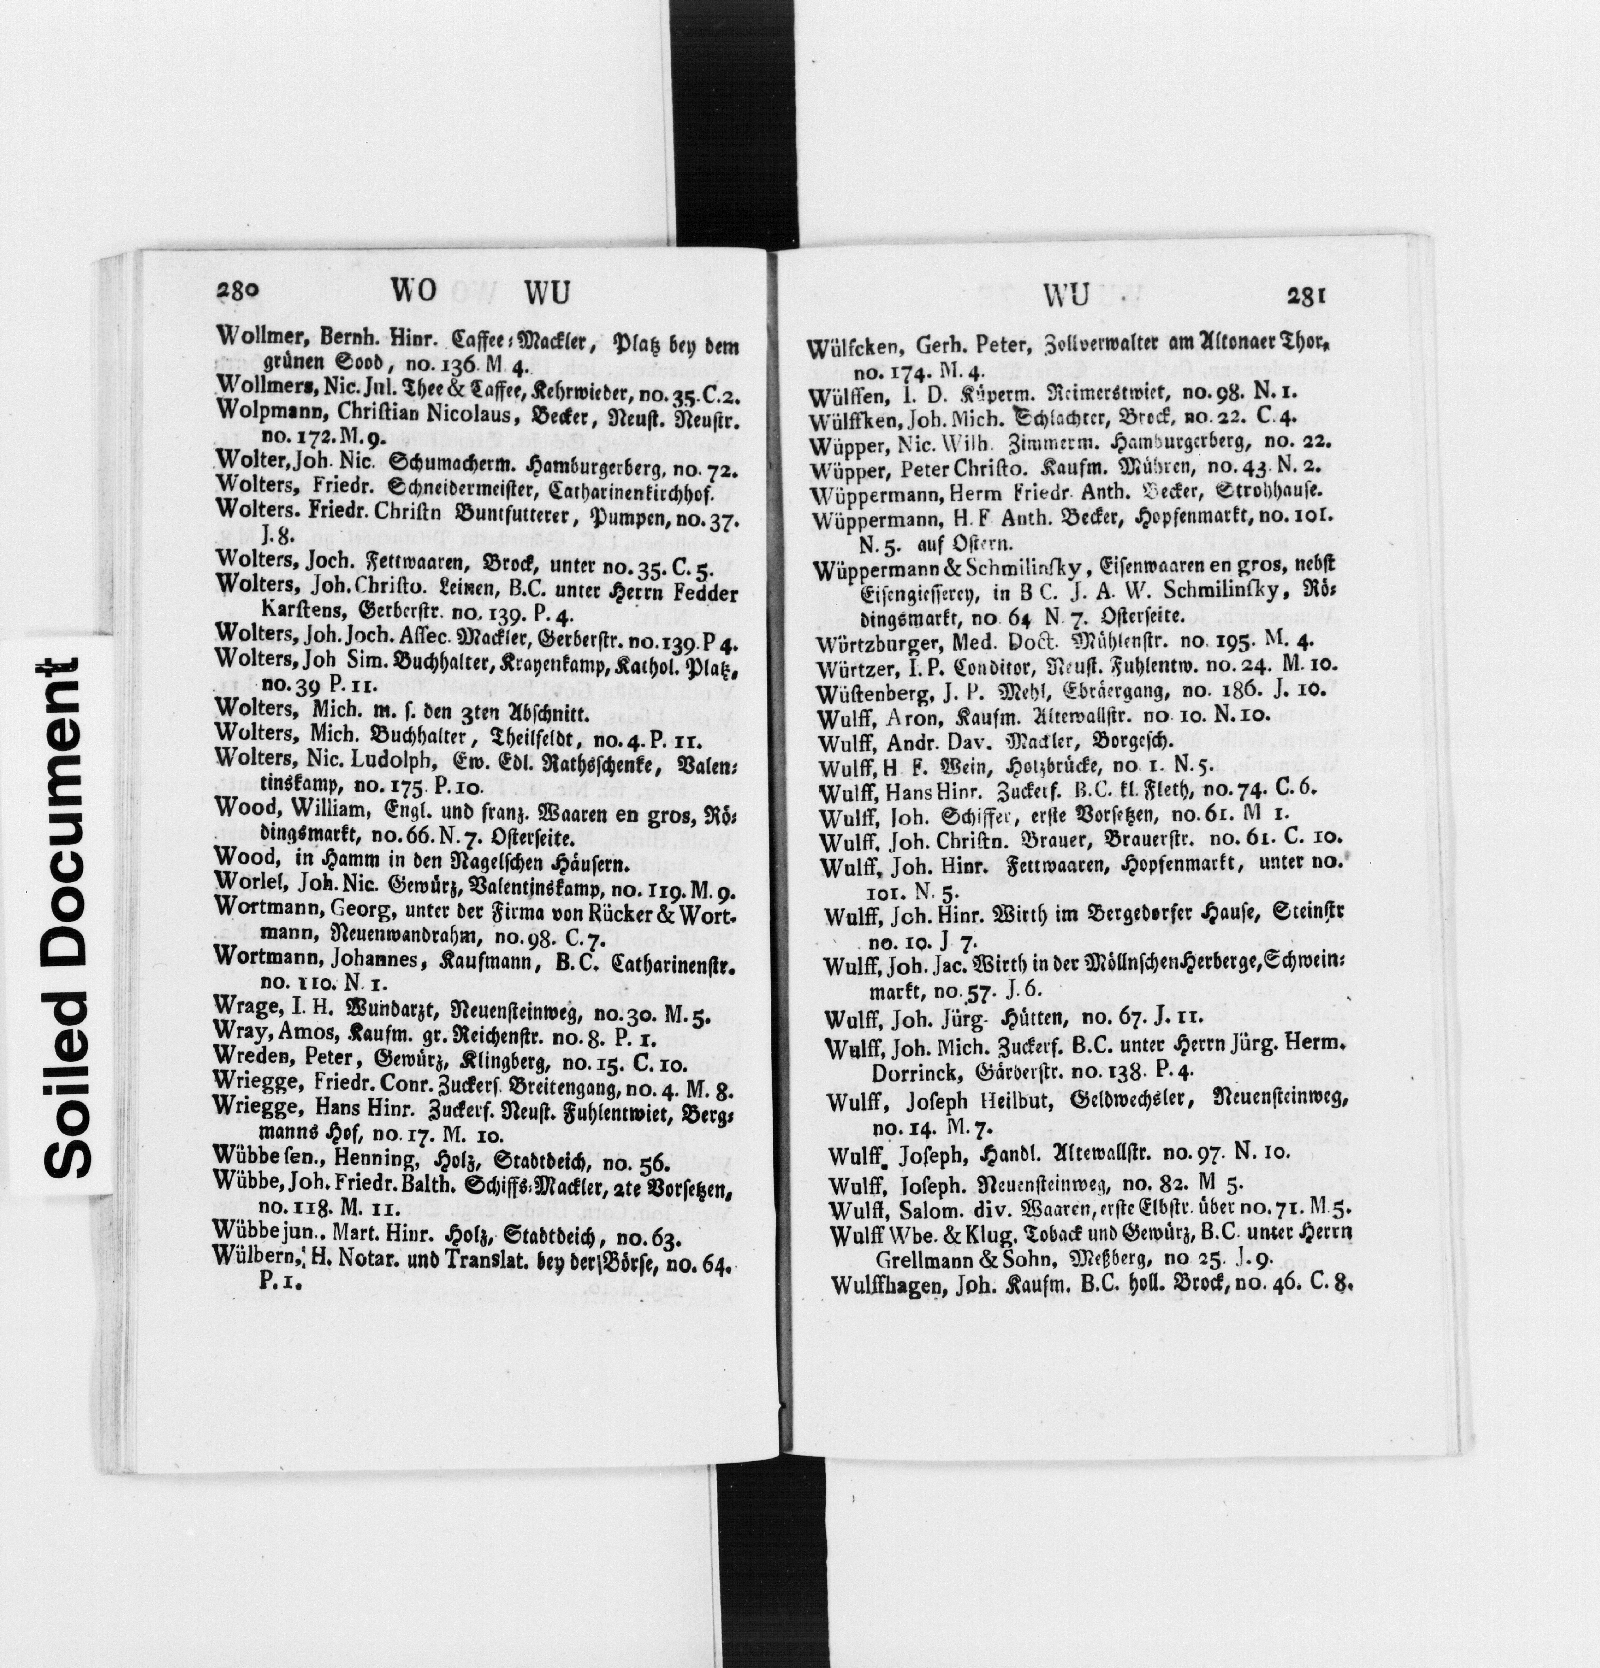 280 WO WU
Wollmer, Bernh. Hinr. Caffee-Mackler, Platz bey dem
grünen Sood, no. 136. M. 4.
Wollmers, Nic. Jul. Thee & Caffee, Kehrwieder, no. 35. C. 2.
Wolpmann, Christian Nicolaus, Becker, Neust. Neustr.
no. 172. M. 9.
Wolter, Joh. Nic. Schumacherm. Hamburgerberg, no. 72.
Wolters, Friedr. Schneidermeister, Catharinenkirchhof.
Wolters. Friedr. Christn Buntfutterer, Pumpen, no. 37.
J. 8.
Wolters, Joch. Fettwaaren, Brock, unter no. 35. C. 5.
Wolters, Joh. Christo. Leinen, B.C. unter Herrn Fedder
Karstens, Gerberstr. no. 139. P. 4.
Wolters, Joh. Joch. Assec. Mackler, Gerberstr. no. 139. P 4.
Wolters, Joh Sim. Buchhalter, Krayenkamp, Kathol. Platz,
no. 39 P. 11.
Wolters, Mich. m. s. den 3ten Abschnitt.
Wolters, Mich. Buchhalter, Theilfeldt, no. 4. P. 11.
Wolters, Nic. Ludolph, Ew. Edl. Rathsschenke, Valen-
tinskamp, no. 175. P. 10.
Wood, William, Engl. und franz. Waaren en gros, Rö-
dingsmarkt, no. 66. N. 7. Osterseite.
Wood, in Hamm in den Nagelschen Häusern.
Worlel, Joh. Nic. Gewürz, Valentinskamp, no. 119. M. 9.
Wortmann, Georg, unter der Firma von Rücker & Wort-
mann, Neuenwandrahm, no. 98. C. 7.
Wortmann, Johannes, Kaufmann, B.C. Catharinenstr.
no. 110. N 1.
Wrage, I. H. Wundarzt, Neuensteinweg, no. 30. M. 5.
Wray, Amos, Kaufm. gr. Reichenstr. no. 8. P. 1.
Wreden, Peter, Gewürz, Klingberg, no. 15. C. 10.
Wriegge, Friedr. Conr. Zuckers. Breitengang, no. 4. M. 8.
Wriegge, Hans Hinr. Zuckers. Neust. Fuhlentwiet, Berg-
manns Hof, no. 17. M. 10.
Wübbe sen., Henning, Holz, Stadtdeich, no. 56.
Wübbe, Joh. Friedr. Balth. Schiffs-Mackler, 2te Vorsetzen,
no. 118. M. 11.
Wübbe jun., Mart. Hinr. Holz, Stadtdeich, no. 63.
Wülbern, H. Notar. und Translat. bey der Börse, no. 64.
P. 1.
WU 281
Wülfcken, Gerh. Peter, Zollverwalter am Altonaer Thor,
no. 174. M. 4.
Wülffen, I. D. Küperm. Reimerstwiet, no. 98. N. 1.
Wülffken, Joh. Mich. Schlachter, Brock, no. 22. C. 4.
Wüpper, Nic. Wilh. Zimmerm. Hamburgerberg, no. 22.
Wüpper, Peter Christo. Kaufm. Mühren, no. 43. N. 2.
Wüppermann, Herm Friedr. Anth. Becker, Strohhause.
Wüppermann, H. F. Anth. Becker, Hopfenmarkt, no. 101.
N. 5. auf Ostern.
Wüppermann & Schmilinsky, Eisenwaaren en gros, nebst
Eisengiesserey, in B C. J. A. W. Schmilinsky, Rö-
dingsmarkt, no 64 N. 7. Osterseite.
Würtzburger, Med. Doct. Mühlenstr. no. 195. M. 4.
Würtzer, I. P. Conditor, Neust. Fuhlentw. no. 24. M. 10.
Wüstenberg, J. P. Mehl, Ebräergang, no. 186. J. 10.
Wulff, Aron, Kaufm. Altewallstr. no. 10. N. 10.
Wulff, Andr. Dav. Mackler, Borgesch.
Wulff, H F. Wein, Holzbrücke, no 1. N. 5.
Wulff, Hans Hinr. Zuckers. B.C. kl. Fleth, no. 74. C. 6.
Wulff, Joh. Schiffer, erste Vorsetzen, no. 61. M 1.
Wulff, Joh. Christn. Brauer, Brauerstr. no. 61. C. 10.
Wulff, Joh. Hinr. Fettwaaren, Hopfenmarkt, unter no.
101. N. 5.
Wulff, Joh. Hinr. Wirth im Bergedorfer Hause, Steinstr
no. 10. J 7.
Wulff, Joh. Jac. Wirth in der Möllnschen Herberge, Schwein-
markt, no. 57. J. 6.
Wulff, Joh. Jürg. Hütten, no. 67. J. 11.
Wulff, Joh. Mich. Zuckers. B.C. unter Herrn Jürg. Herm.
Dorrinck, Gärberstr. no. 138. P. 4.
Wulff, Joseph Heilbut, Geldwechsler, Neuensteinweg,
no. 14. M. 7.
Wulff, Joseph, Handl. Altewallstr. no. 97. N. 10.
Wulff, Joseph. Neuensteinweg, no. 82. M 5.
Wulff, Salom. div. Waaren, erste Elbstr. über no. 71. M. 5.
Wulff Wbe. & Klug. Toback und Gewürz, B.C. unter Herrn
Grellmann & Sohn, Meßberg, no 25. J. 9.
Wulffhagen, Joh. Kaufm. B.C. holl. Brock, no. 46. C. 8.
Soiled Document